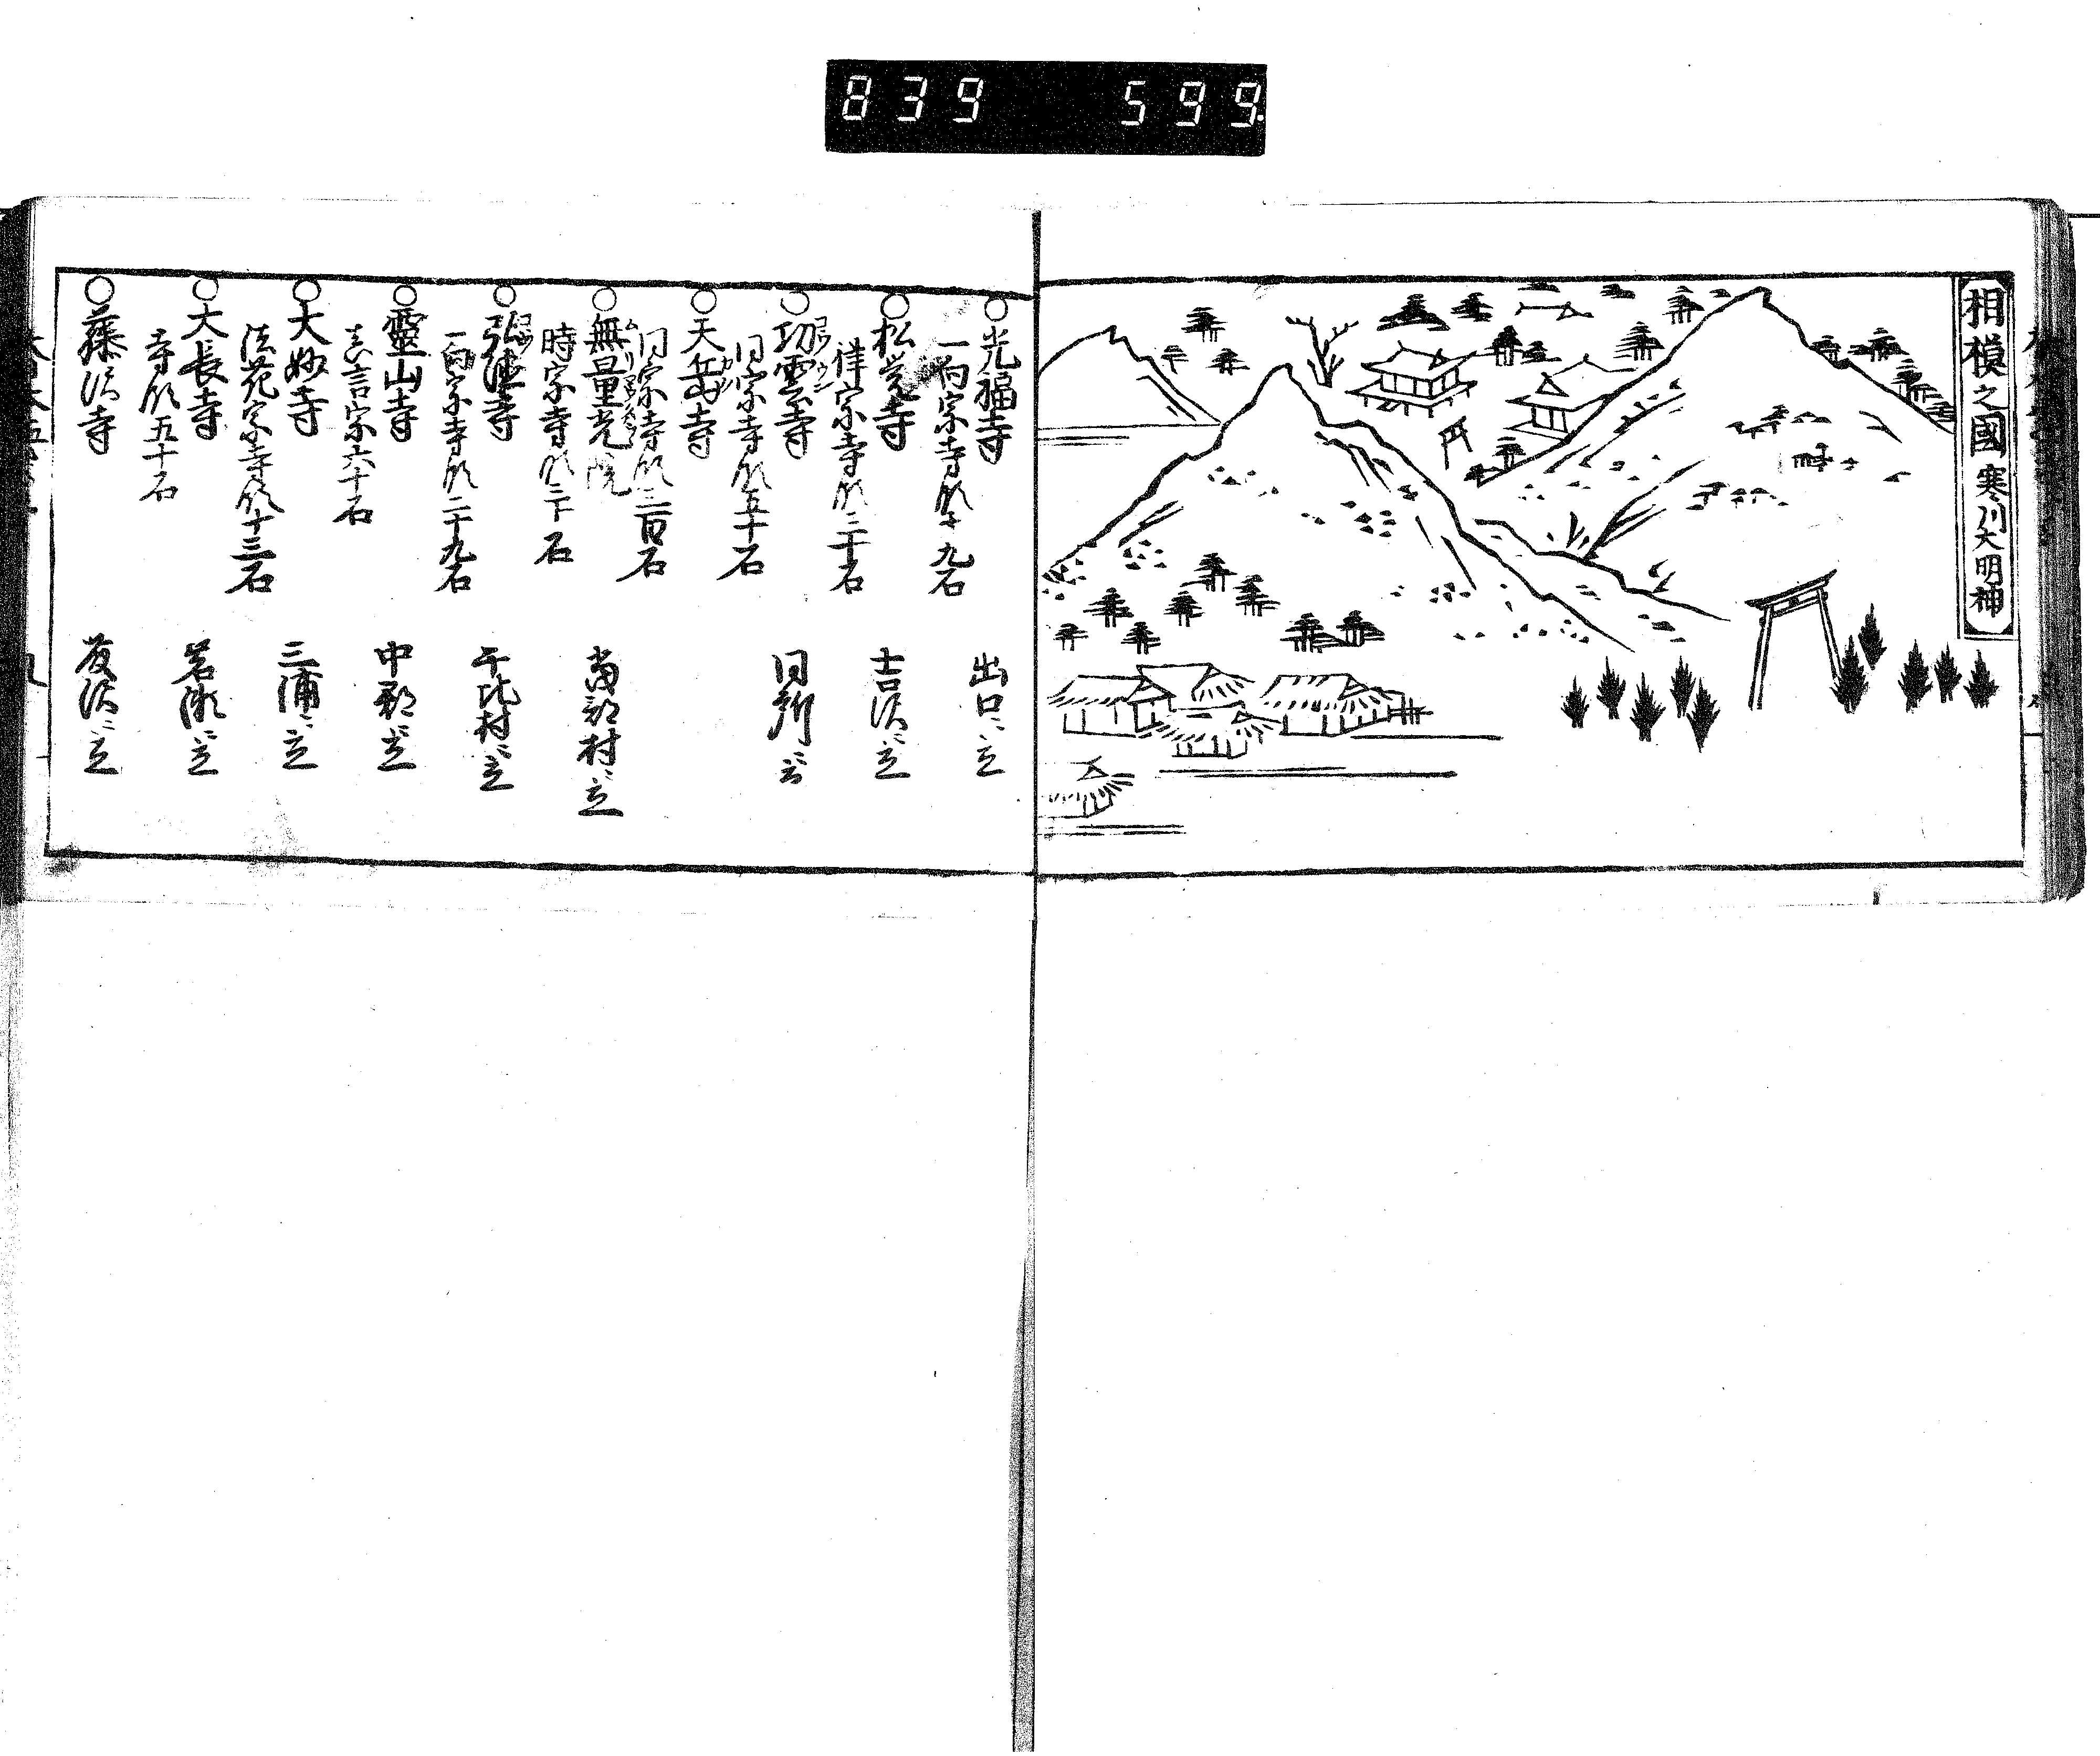 839 599
相模之國 寒川大明神
○光福寺
出口ニ立
一向宗寺領十九石
○松岩寺
吉沢ニ立
禅宗寺領三十石
○功雲寺
コウウン
同所ニ立
同宗寺領五十石
○天岳寺
同宗寺領三百石
○無量光院
当麻村ニ立
時宗寺領三十石
千比村ニ立
一向宗寺領二十九石
○霊山寺
中郡ニ立
真言宗六十石
○大妙寺
三浦ニ立
法花宗寺領十三石
○大長寺
岩瀬ニ立
寺領五十石
○藤沢寺
藤沢ニ立